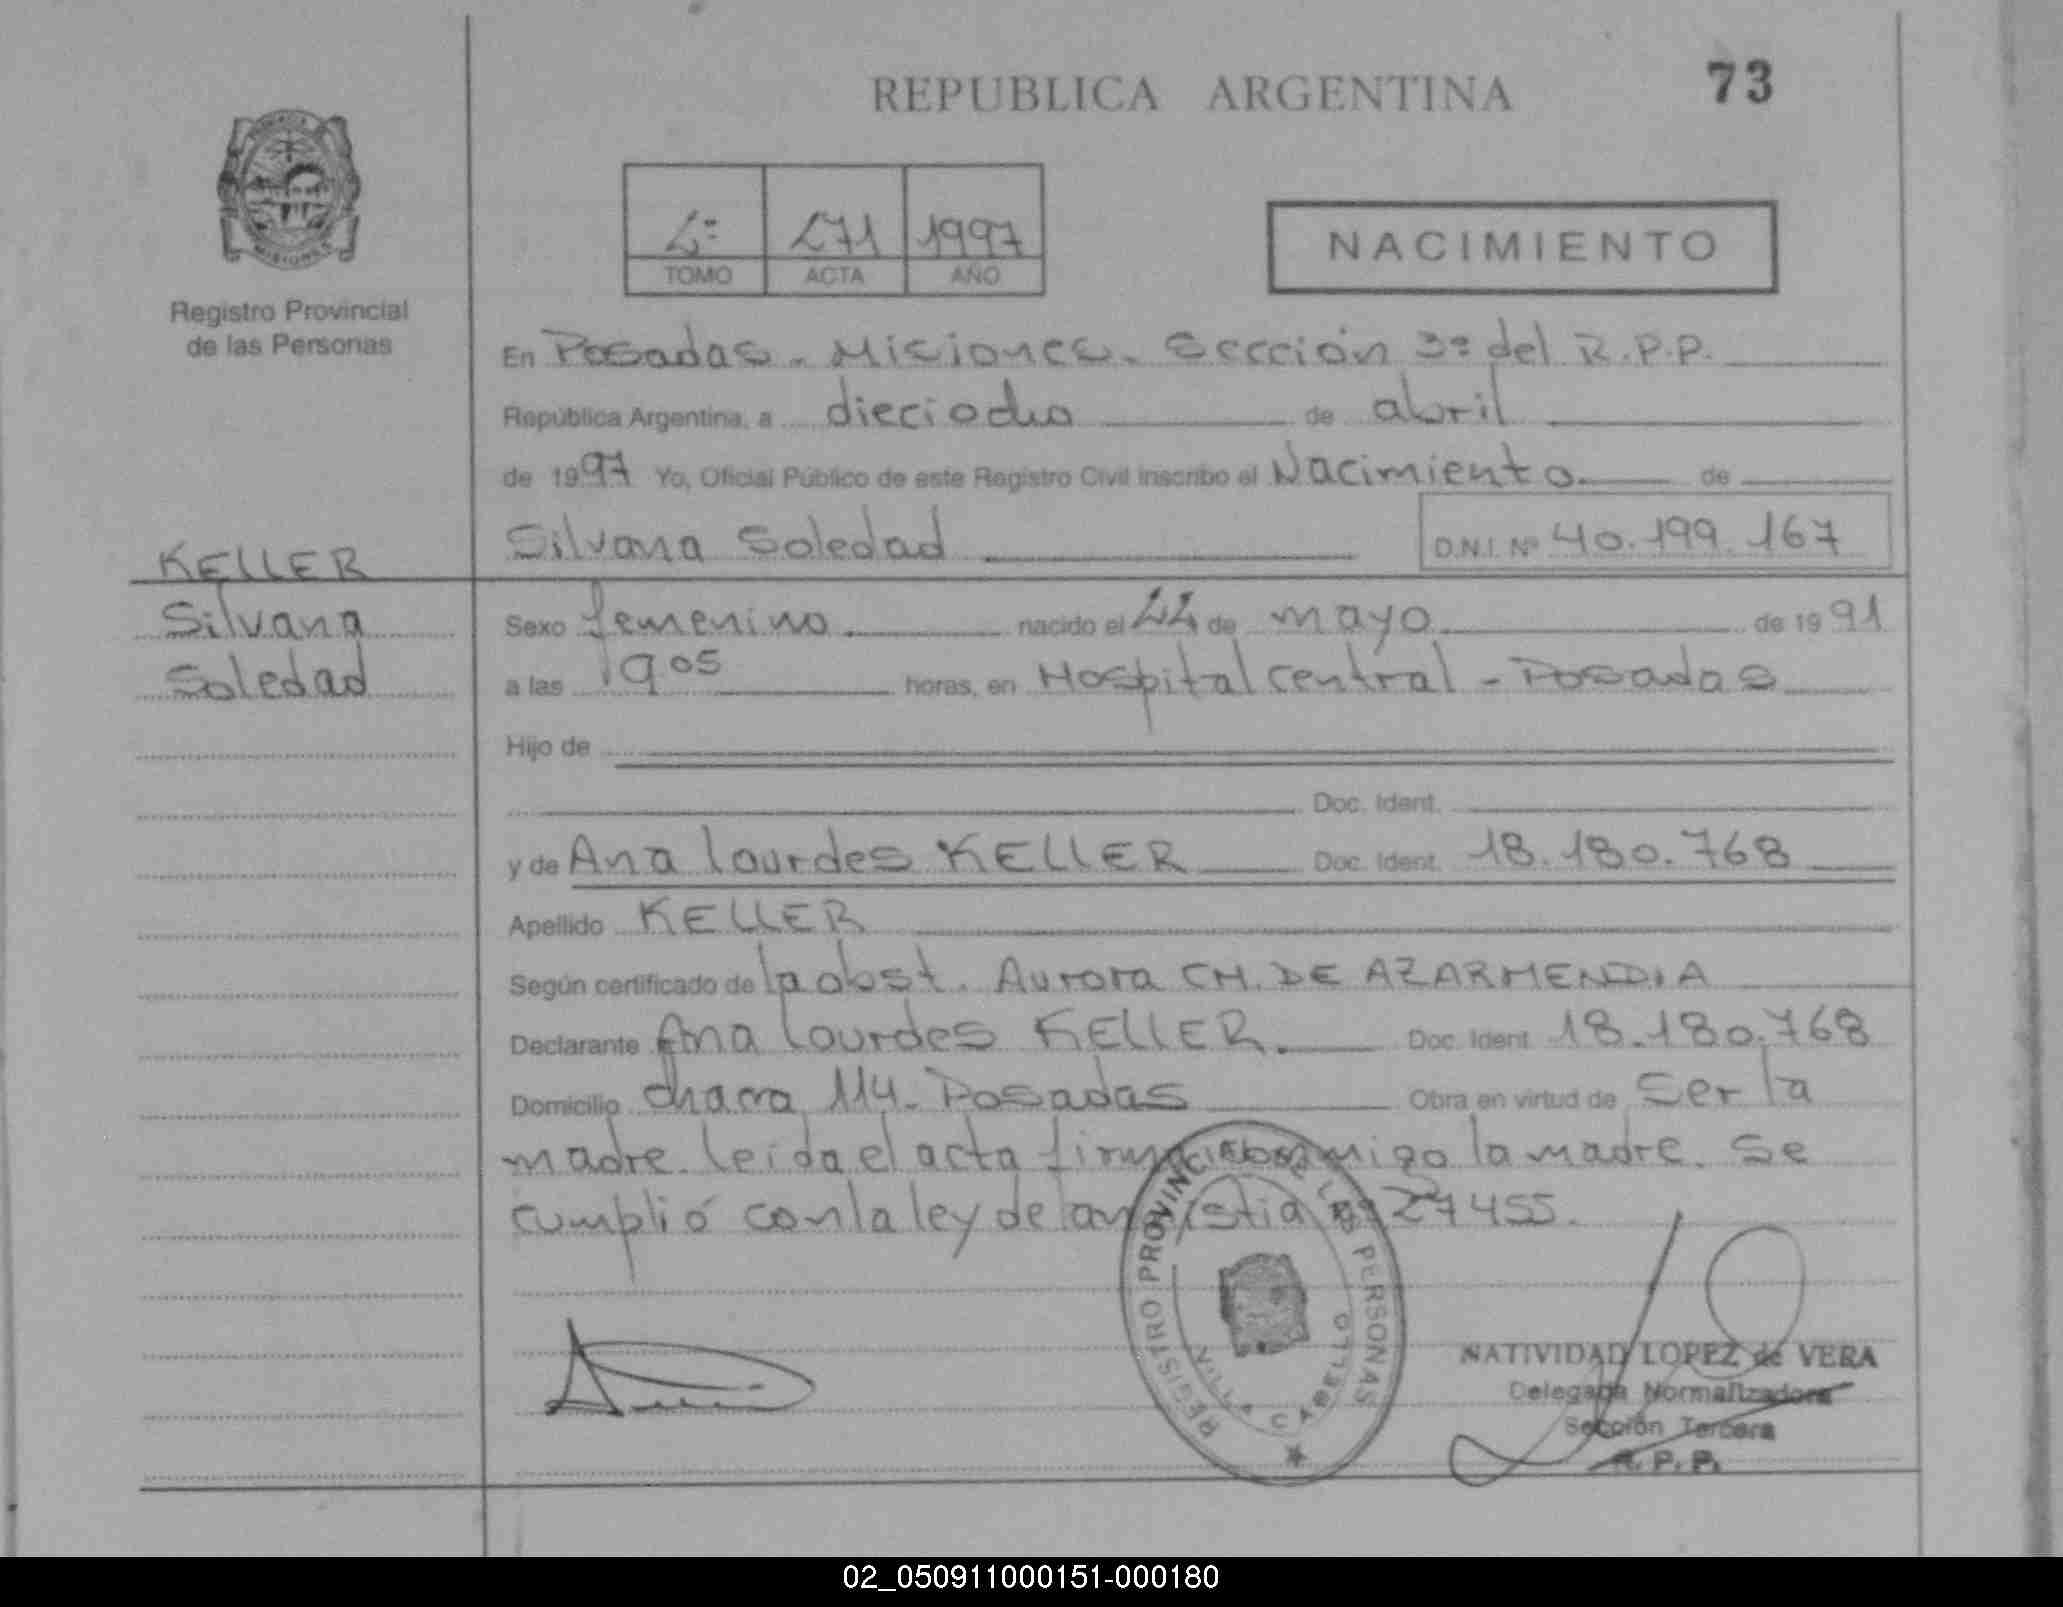 REPUBLICA ARGENTINA
73
MISIONES
Registro Provincial
de las Personas
2º 271 1997
TOMO ACTA AÑO
NACIMIENTO
En Posadas - Misiones. Sección 3º del R.P.P.
República Argentina, a dieciocho de abril
de 1997 Yo, Oficial Público de este Registro Civil inscribo el Nacimiento. de
Silvana Soledad D.N.I. Nº 40.199.167
KELLER
Silvana
Soledad
Sexo femenino nacido el 22 de mayo de 1991
a las 19 05 horas, en Hospital central - Posadas
Hijo de
Doc. Ident.
y de Ana Lourdes KELLER Doc. Ident. 18.180.768
Apellido KELLER
Según certificado de la obst. Aurora CH. DE AZARMENDIA
Declarante Ana Lourdes KELLER. Doc. Ident 18.180.768
Domicilio chacra 114 - Posadas Obra en virtud de ser la
madre. Leída el acta firma conmigo la madre. Se
cumplió con la ley de amnistia nº 27455.
REGISTRO PROVINCIAL DE LAS PERSONAS
VILLA CABELLO
NATIVIDAD LOPEZ de VERA
Delegada Normalizadora
Sección Tercera
R. P. P.
02_050911000151-000180